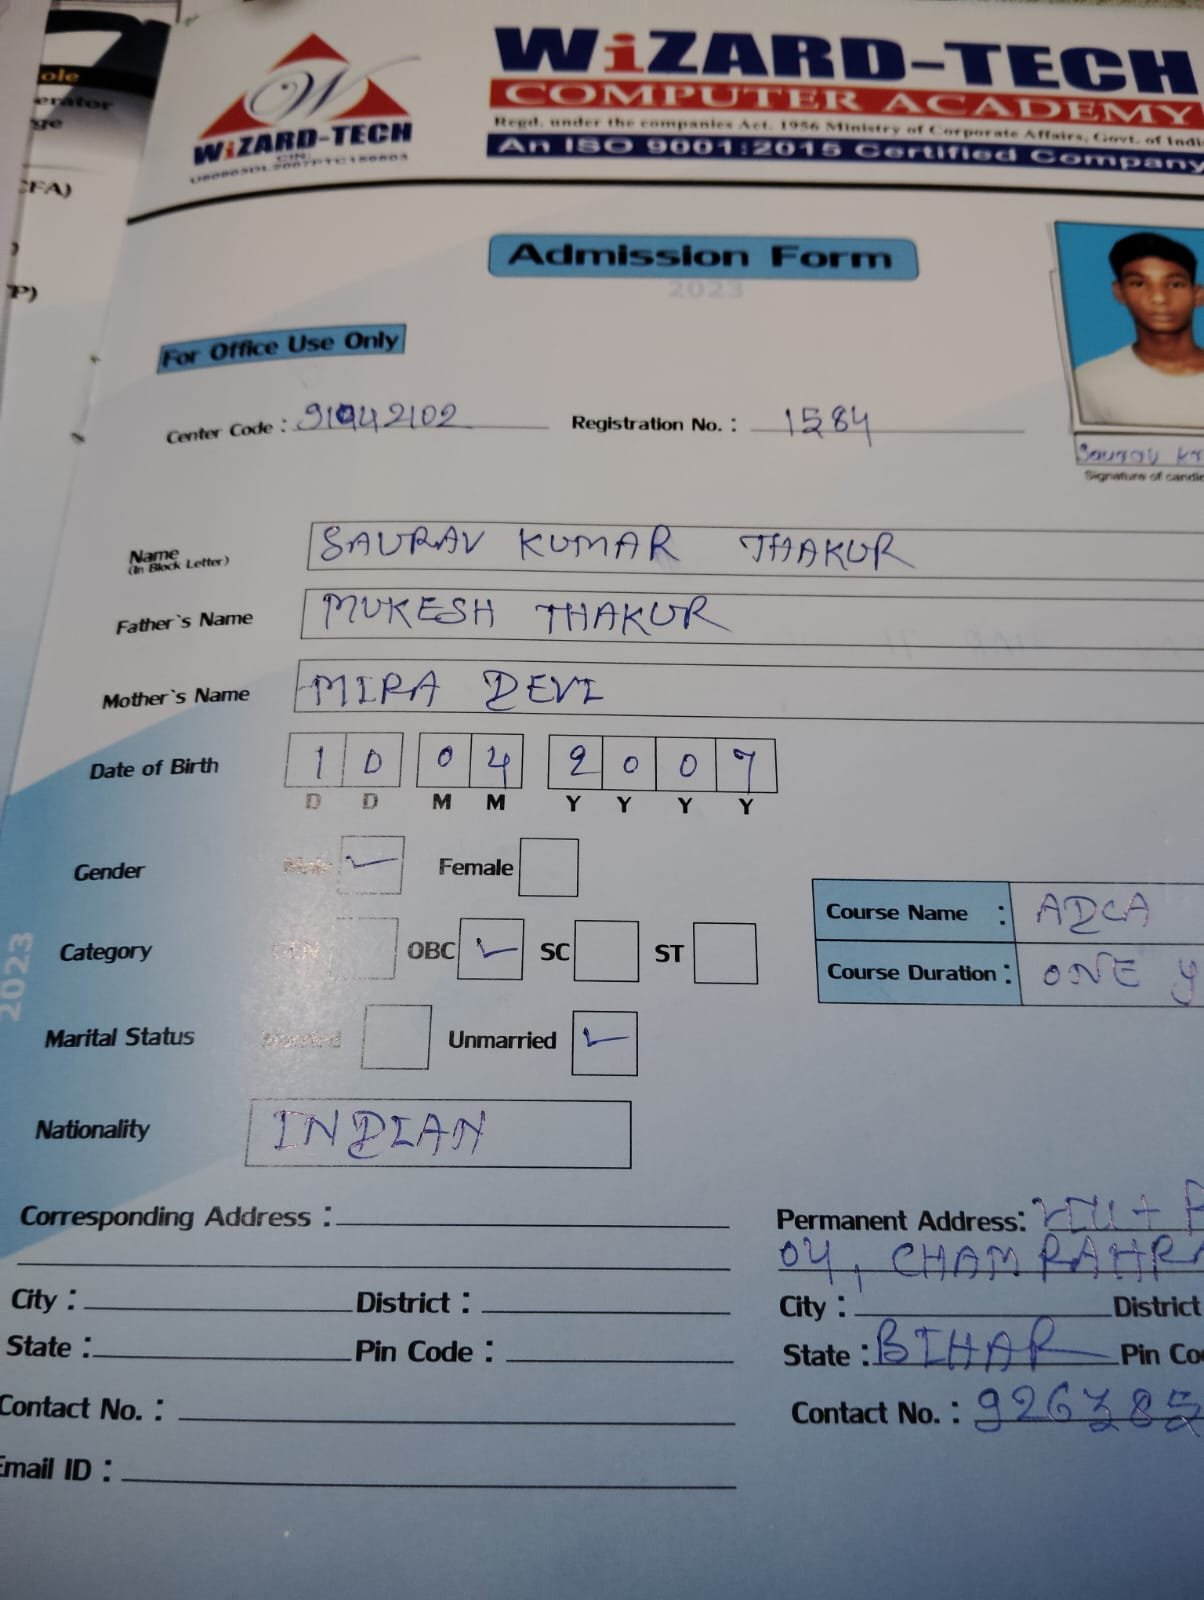 ole
erator
ge
CFA)
P)
W
WiZARD-TECH
CIN.
WiZARD-TECH
COMPUTER ACADEMY
Regd. under the companies Act. 1956 Ministry of Corporate Affairs, Govt. of Indi
An ISO 9001:2015 Certified Company
Admission Form
2023
For Office Use Only
Center Code : 91042102 Registration No. : 1584
Saurav
Signature of candi
Name SAURAV KUMAR THAKUR
(In Block Letter)
Father`s Name MUKESH THAKUR
Mother`s Name MIRA DEVI
Date of Birth 10 04 2007
D D M M Y Y Y Y
Gender Male Female
Course Name : ADCA
Category GEN OBC SC ST
Course Duration : ONE Y
2023
Marital Status Married Unmarried
Nationality INDIAN
Corresponding Address : Permanent Address: VILL + P
04, CHAMRAHRA
City : District : City : District
State : Pin Code : State : BIHAR Pin Co
Contact No. : Contact No. : 926385
Email ID :